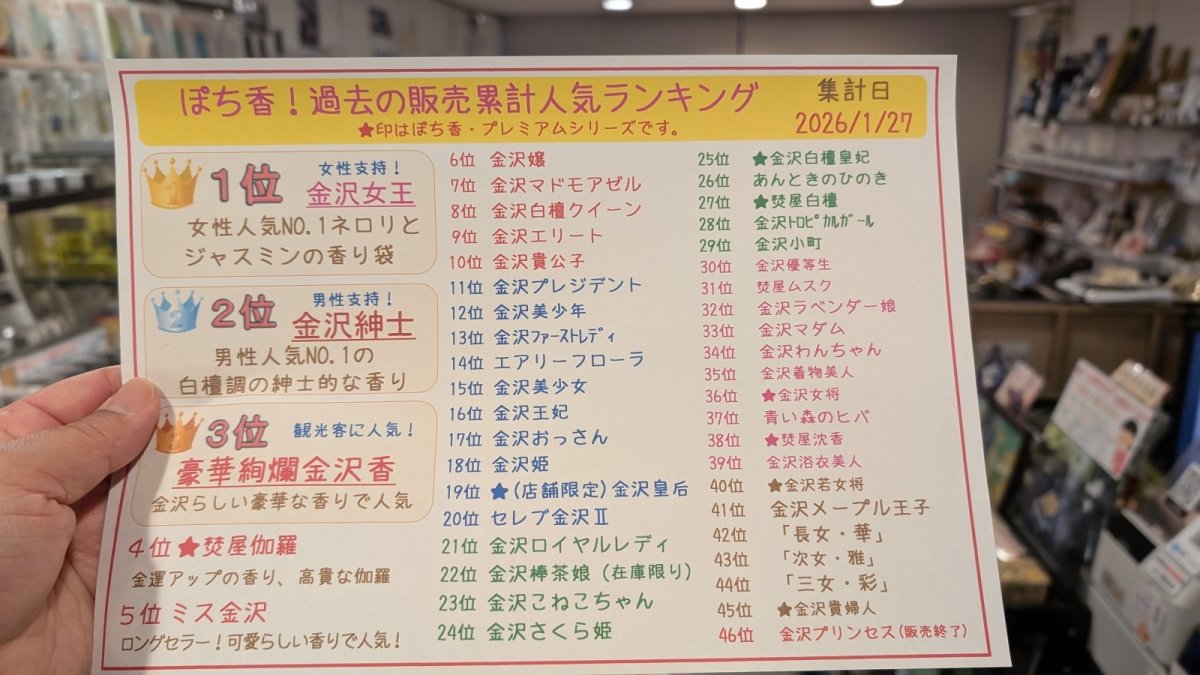 ぽち香！過去の販売累計人気ランキング
★印はぽち香・プレミアムシリーズです。
集計日
2026/1/27
1
1位
女性支持！
金沢女王
女性人気NO.1ネロリと
ジャスミンの香り袋
2
2位
男性支持！
金沢紳士
男性人気NO.1の
白檀調の紳士的な香り
3位
観光客に人気！
豪華絢爛金沢香
金沢らしい豪華な香りで人気
4位★焚屋伽羅
金運アップの香り、高貴な伽羅
5位 ミス金沢
ロングセラー！可愛らしい香りで人気！
6位 金沢嬢
7位 金沢マドモアゼル
8位 金沢白檀クイーン
9位 金沢エリート
10位 金沢貴公子
11位 金沢プレジデント
12位 金沢美少年
13位 金沢ﾌｧｰｽﾄﾚﾃﾞｨ
14位 エアリーフローラ
15位 金沢美少女
16位 金沢王妃
17位 金沢おっさん
18位 金沢姫
19位 ★(店舗限定)金沢皇后
20位 セレブ金沢Ⅱ
21位 金沢ロイヤルレディ
22位 金沢棒茶娘（在庫限り）
23位 金沢こねこちゃん
24位 金沢さくら姫
25位 ★金沢白檀皇妃
26位 あんときのひのき
27位 ★焚屋白檀
28位 金沢ﾄﾛﾋﾟｶﾙｶﾞｰﾙ
29位 金沢小町
30位 金沢優等生
31位 焚屋ムスク
32位 金沢ラベンダー娘
33位 金沢マダム
34位 金沢わんちゃん
35位 金沢着物美人
36位 ★金沢女将
37位 青い森のヒバ
38位 ★焚屋沈香
39位 金沢浴衣美人
40位 ★金沢若女将
41位 金沢メープル王子
42位 「長女・華」
43位 「次女・雅」
44位 「三女・彩」
45位 ★金沢貴婦人
46位 金沢プリンセス(販売終了)